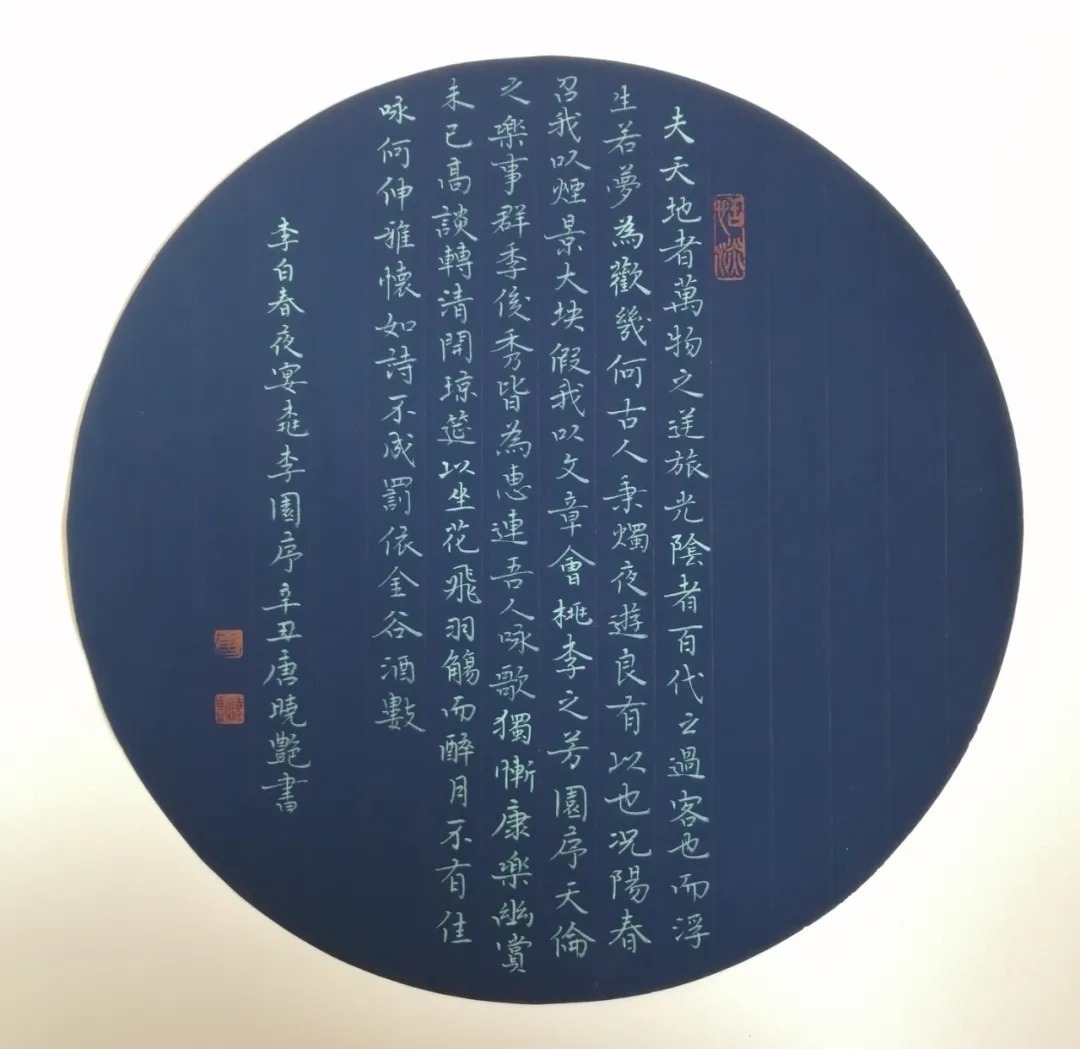 夫天地者萬物之逆旅光陰者百代之過客也而浮
生若夢為歡幾何古人秉燭夜遊良有以也況陽春
召我以煙景大块假我以文章會桃李之芳園序天倫
之樂事群季俊秀皆為惠連吾人咏歌獨慚康樂幽賞
未已高談轉清開琼筵以坐花飛羽觴而醉月不有佳
咏何伸雅懷如詩不成罰依金谷酒數
李白春夜宴桃李園序辛丑唐曉艷書